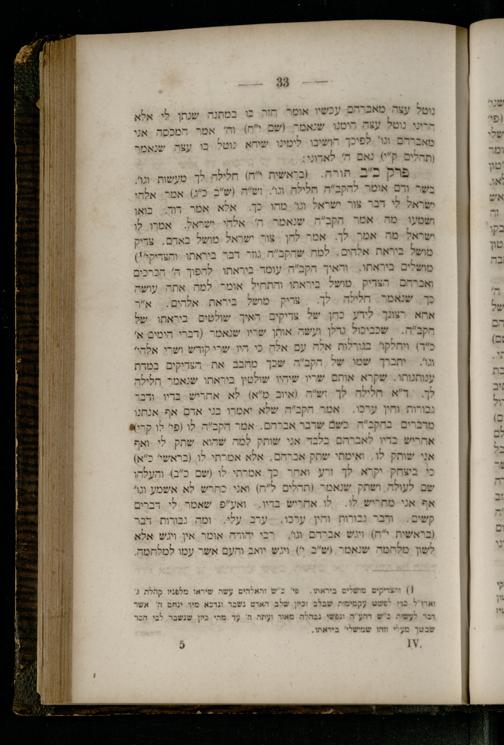 — 33 —
נוטל עצה מאברהם עכשיו אומר חזר בו במתנה שנתן לי אלא
הריני נוטל עצה הימנו שנאמר (שם י״ח) וה׳ אמר המכסה אני
מאברהם וגו׳ לפיכך הושיבו לימינו שיהא נוטל בו עצה שנאמר
(תהלים ק״י) נאם ה׳ לאדוני:
פרק כ״ב תורה. (בראשית י״ח) חלילה לך מעשות וגו׳.
בשר ודם אומר להקב״ה חלילה וגו׳. זש״ה (ש״ב כ״ג) אמר אלהי
ישראל לי דבר צור ישראל וגו׳ מהו כך. אלא אמר דוד: בואו
ושמעו מה אמר הקב״ה שנאמר ה׳ אלהי ישראל. אמרו לו
ישראל מה אמר לך. אמר להן צור ישראל מושל באדם. צדיק
מושל ביראת אלהים. למה שהקב״ה גוזר דבר ביראתו והצדיקי׳1)
מושלים ביראתו. והאיך הקב״ה עומד ביראתו להפוך ה׳ הכרכים
ואברהם הצדיק מושל ביראתו והתחיל אומר למה אתה עושה
כך שנאמר חלילה לך. צדיק מושל ביראת אלהים. א״ר
אחא רצונך לידע כחן של צדיקים האיך שולטים ביראתו של
הקב״ה. שכביכול גדלן ועשה אותן שריו שנאמר (דברי הימים א׳
כ״ד) ויחלקו׳ בגורלות אלה עם אלה כי היו שרי קודש ושרי אלהי׳
וגו׳. יתברך שמו של הקב״ה שכך מחבב את הצדיקים במדת
ענותנותו. שקרא אותם שריו שיהיו שולטין ביראתו שנאמר חלילה
לך. ד״א חלילה לך זש״ה (איוב מ״א) לא אחריש בדיו ודבר
גבורות וחין ערכו. אמר הקב״ה שלא יאמרו בני אדם אף אנחנו
מדברים בהקב״ה כשם שדבר אברהם. אמר הקב״ה לו (פי׳ לו קרי)
אחריש בדיו לאברהם בלבד אני שותק למה שהוא שתק לי ואף
אני שותק לו. ואימתי שתק אברהם. אלא אמרתי לו (בראשי׳ כ״א)
כי ביצחק יקרא לך זרע ואחר כך אמרתי לו (שם כ״ב) והעלהו
שם לעולה ושתק שנאמר (תהלים ל״ח) ואני כחרש לא אשמע וגו׳
אף אני מחריש לו. לו אחריש בדיו. ואע״פ שאמר לי דברים
קשים. ודבר גבורות וחין ערכו. ערב עלי. ומה גבורות דבר
(בראשית י״ח) ויגש אברהם וגו׳. רבי יהודה אומר אין ויגש אלא
לשון מלחמה שנאמר (ש״ב י׳) ויגש יואב והעם אשר עמו למלחמה.
1) והצדיקים מושלים ביראתו. פי׳ כ״ש והאלהים עשה שיראו מלפניו קהלת ג׳
וארז״ל כדי לפשט עקמימות שבלב וכיון שלב האדם נשבר ונדכא מיד ינחם ה׳ אשר
דבר לעשות כ״ש דהע״ה ונפשי נבהלה מאוד ועתה ה׳ עד מתי כיון שנשבר לבי הסר
שבטך מעלי וזהו שמושלי׳ ביראתו.
IV. 5